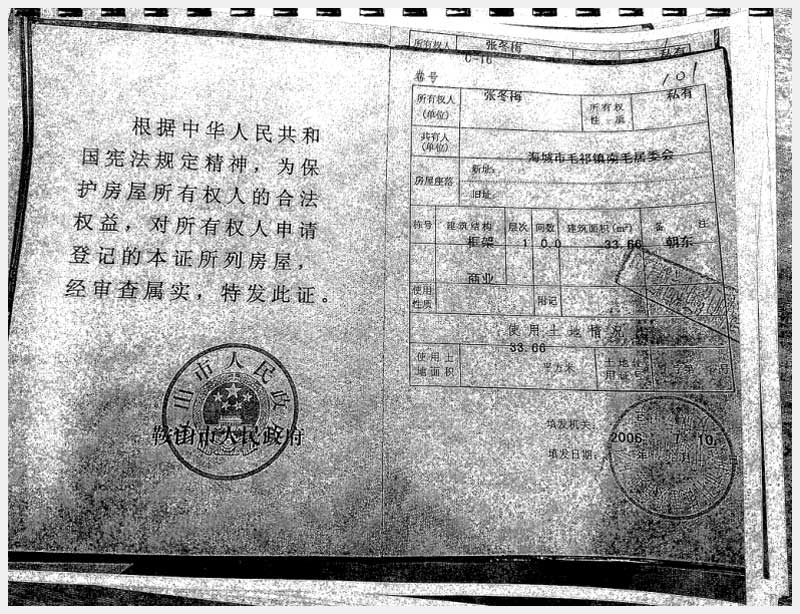 根据中华人民共和
国宪法规定精神，为保
护房屋所有权人的合法
权益，对所有权人申请
登记的本证所列房屋，
经审查属实，特发此证。
山市人民政
鞍山市人民政府
所有权人 张冬梅 私有
C-16
卷号 101
所有权人(单位) 张冬梅 所有权性质 私有
共有人(单位)
海城市毛祁镇南毛居委会
房屋座落 新址:
旧址:
栋号 建筑结构 层次 间数 建筑面积(m²) 备 注
框架 1 0.0 33.66 朝东
商业
使用性质 附记
使用土地情况
33.66
使用土地面积 平方米
填发机关:
2006 7 10
填发日期: 年 月